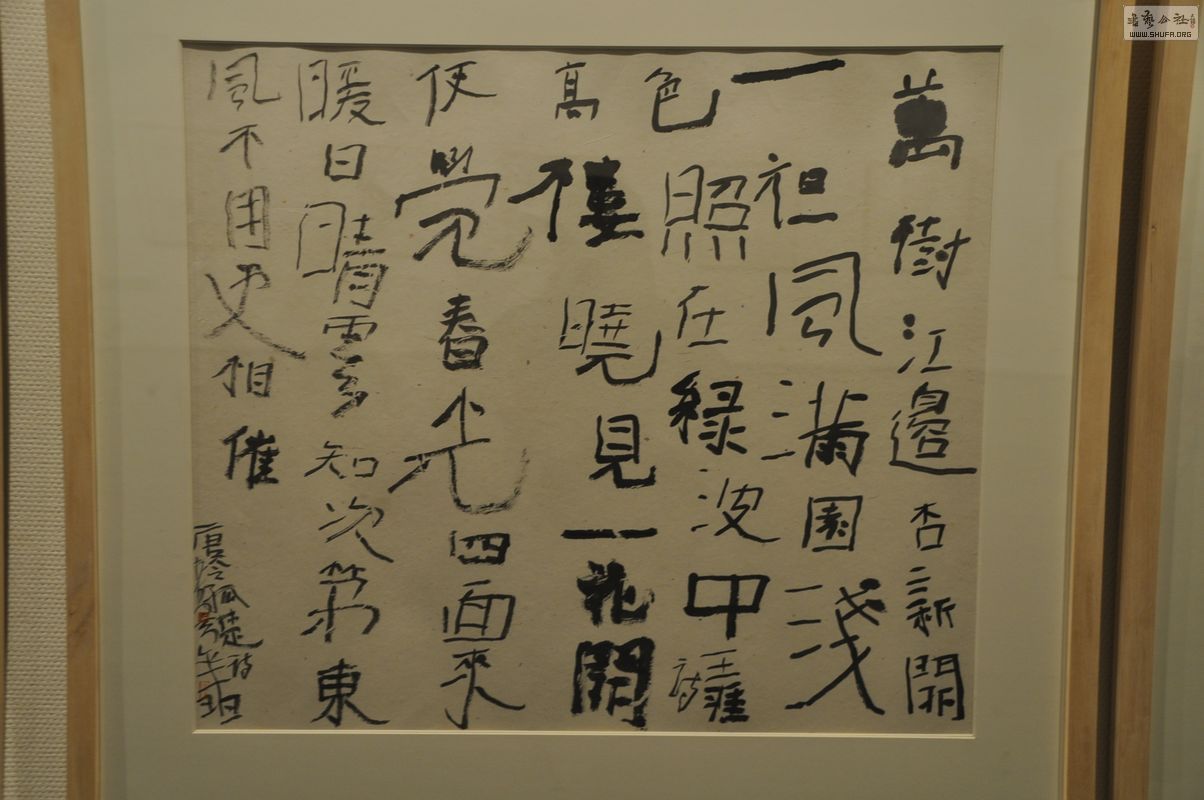 萬樹江邊杏新開
一風滿園淺
色照在綠波中王涯詩
高樓曉見一花開
便覺春光四面來
暖日晴雲知次第東
風不用更相催
唐令狐楚詩
書藝公社
WWW.SHUFA.ORG